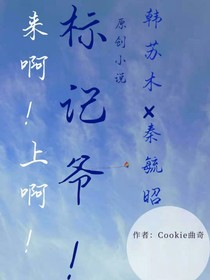 韩苏木×秦毓昭
原创小说
标记爷！
来啊！上啊！
作者：Cookie曲奇